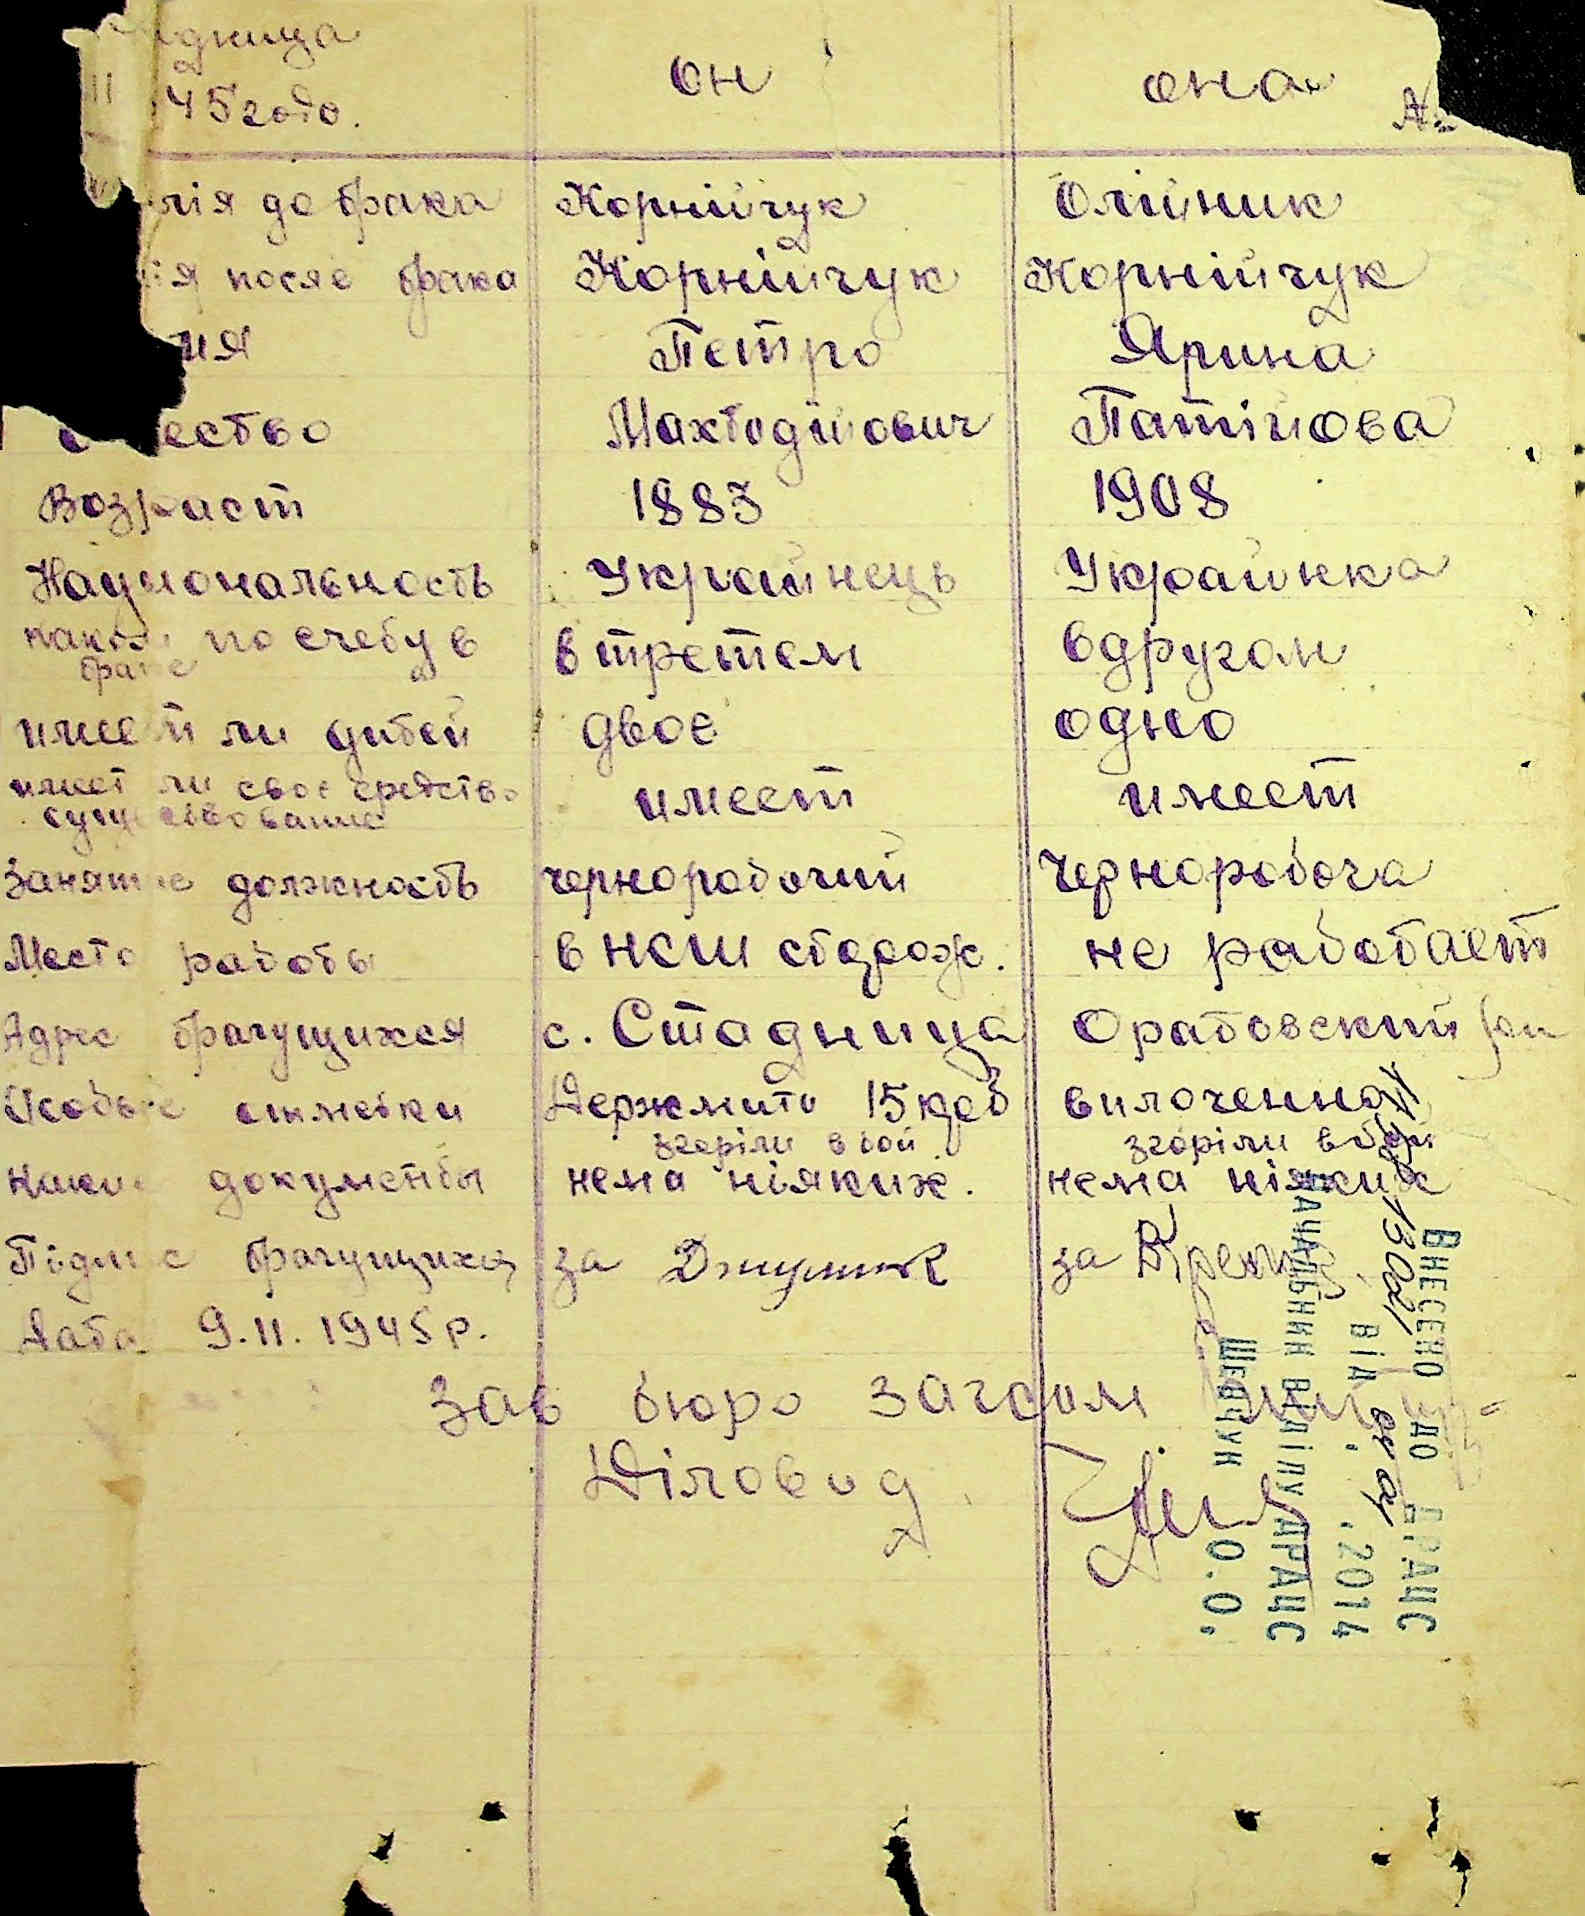 дница
45 года.
он
она
№
лія до брака Корнійчук Олійник
ія посяе брака Корнійчук Корнійчук
мя Петро Ярина
ество Махтодійович Патійова
Возраст 1883 1908
Национальность Українець Українка
по счету в браке в третем в другом
имеет ли дитей двоє одно
имеет ли своє средство существование имеет имеет
Занятие должность чернорабочий Чернорабоча
Место работы в НСШ сторож. не работает
Адрес брачущихся с. Стадница Оратовский
Особые отметки Держмито 15 крб виплоченно
згоріли в бой згоріли в бой
Какие документы нема ніяких. нема ніяких
Підпис брачущихся за за
Дата 9.11.1945 р.
Зав бюро загсом
Діловод
ВНЕСЕНО ДО ДРАЦС
ВІД .2014
НАЧАЛЬНИК ВІДДІЛУ ДРАЦС
ШЕВЧУК О.О.